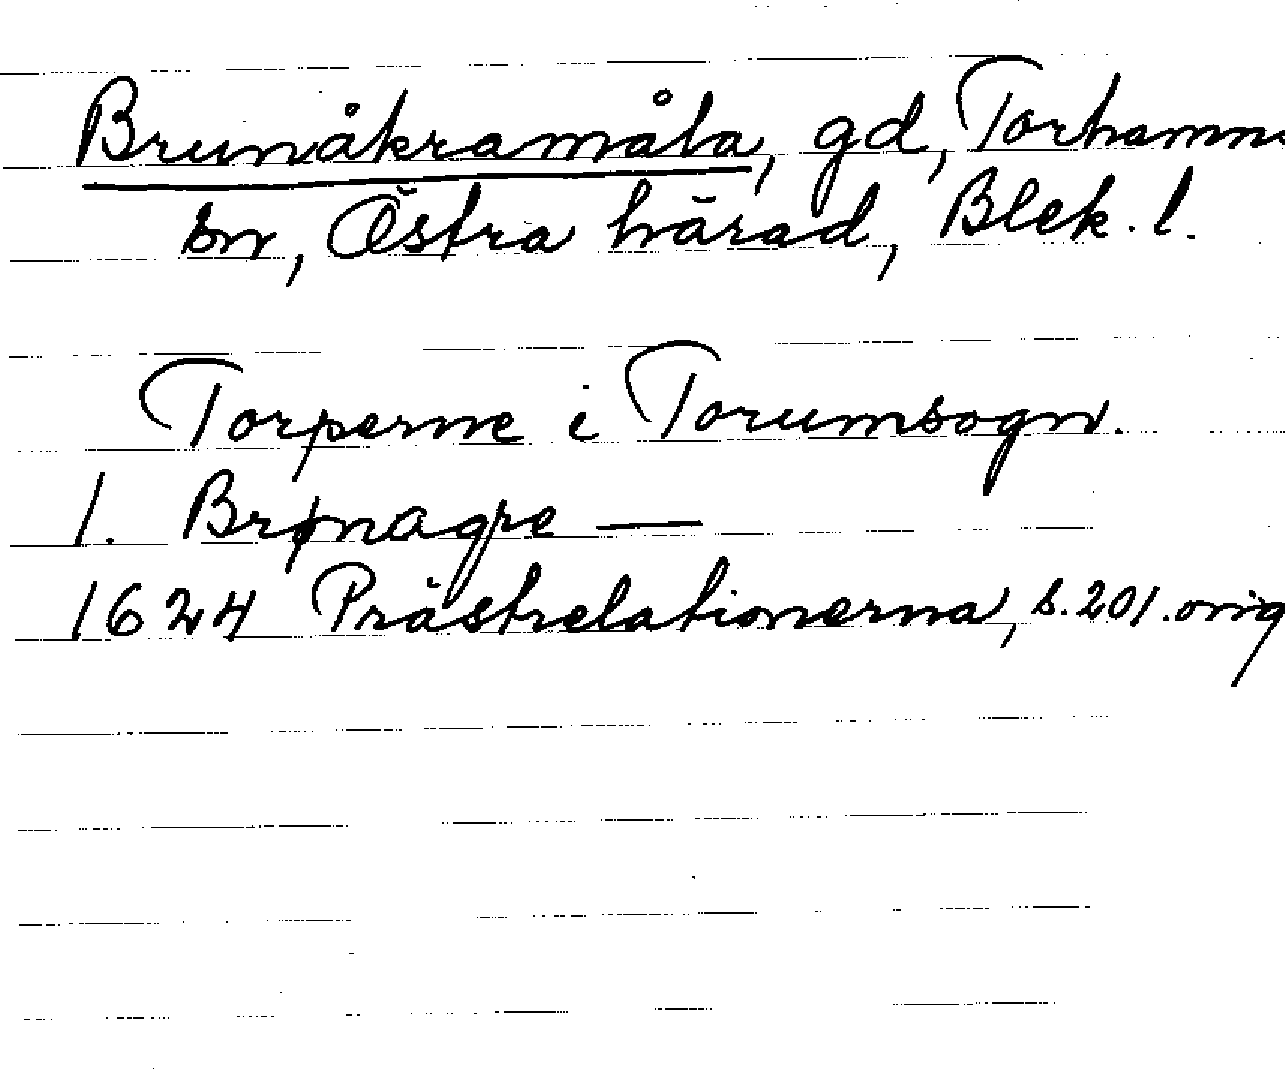 Brunåkramåla, gd, Torhamns
sn, Östra härad, Blek. l.
Torperne i Torumsogn.
1. Brønagre —
1624 Prästrelationerna, s. 201. orig